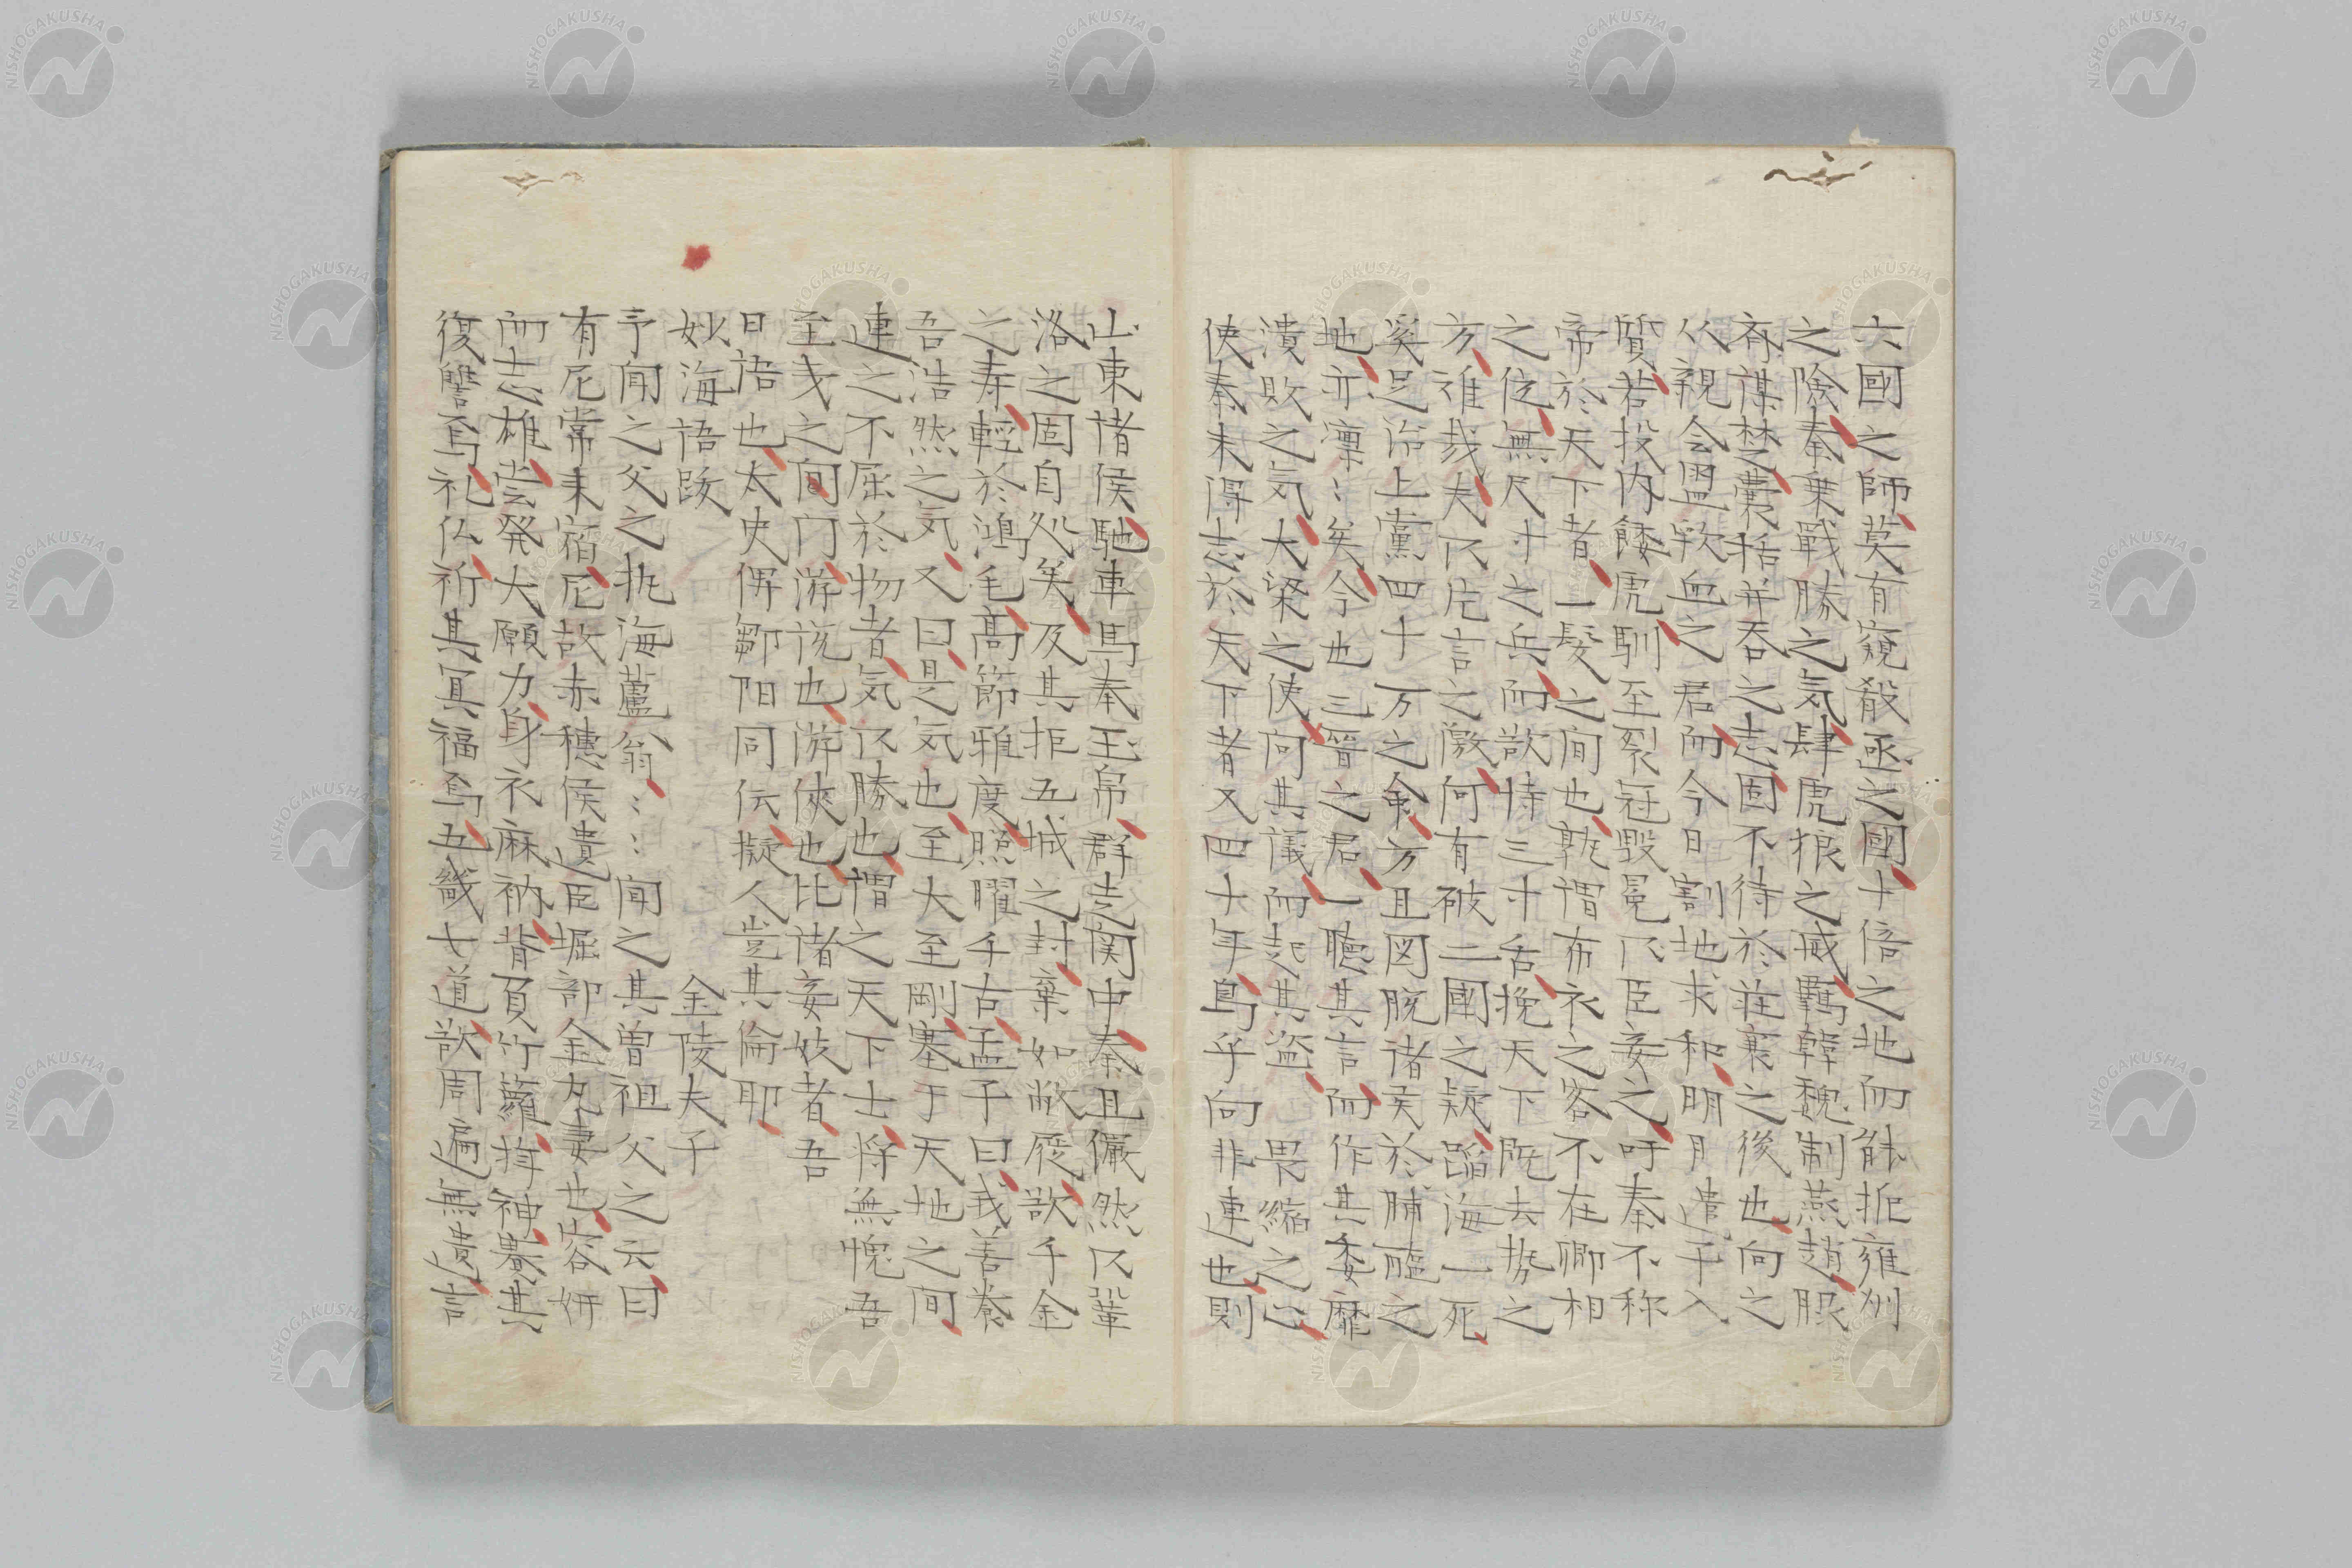 六國之師莫有窺殽函之國十倍之地而能扼雍州
之険秦乗戰勝之気肆虎狼之威羈韓魏制燕趙服
斉謀楚嚢括并吞之志固不待於荘襄之後也向之
从親会盟歃血之君而今日割地求和明月遣子入
質若投肉餧虎馴至裂冠毀冕以臣妾之吁秦不称
帝於天下者一髮之间也孰謂布衣之客不在卿相
之位無尺寸之兵而欲恃三寸舌挽天下既去㔟之
方难哉夫以片言之激何有破二國之疑蹈海一死
奚足治上黨四十万之余方且図脱诸侯於脯醢之
地亦凛〻矣今也三晋之君一聴其言而作其委靡
潰敗之気大梁之使向其議而起其盗畏縮之心
使秦未得志於天下者又四十年烏乎向非連也則
山東诸侯馳車馬奉玉帛群走関中秦且儼然以鞏
洛之固自処矣及其拒五城之封棄如敝屣欲千金
之寿軽於鴻毛高節雅度照曜千古孟子曰我善養
吾浩然之気又曰是気也至大至剛塞于天地之间
連之不屈於物者気以勝也謂之天下士将無愧吾
至戋之间门游说也游俠也比诸妾妓者吾
曰语也太史俾鄒阳同伝擬人豈其倫耶
妙海语跋
金陵夫子
予闻之父之执海蘆翁〻〻闻之其曽祖父之云曰
有尼常来宿尼故赤穂侯遺臣堀部金丸妻也容妍
而志雄尝発大願力身衣麻衲背負竹蘿持神嚢其
復讐焉礼仏祈其冥福焉五畿七道欲周遍無遺言